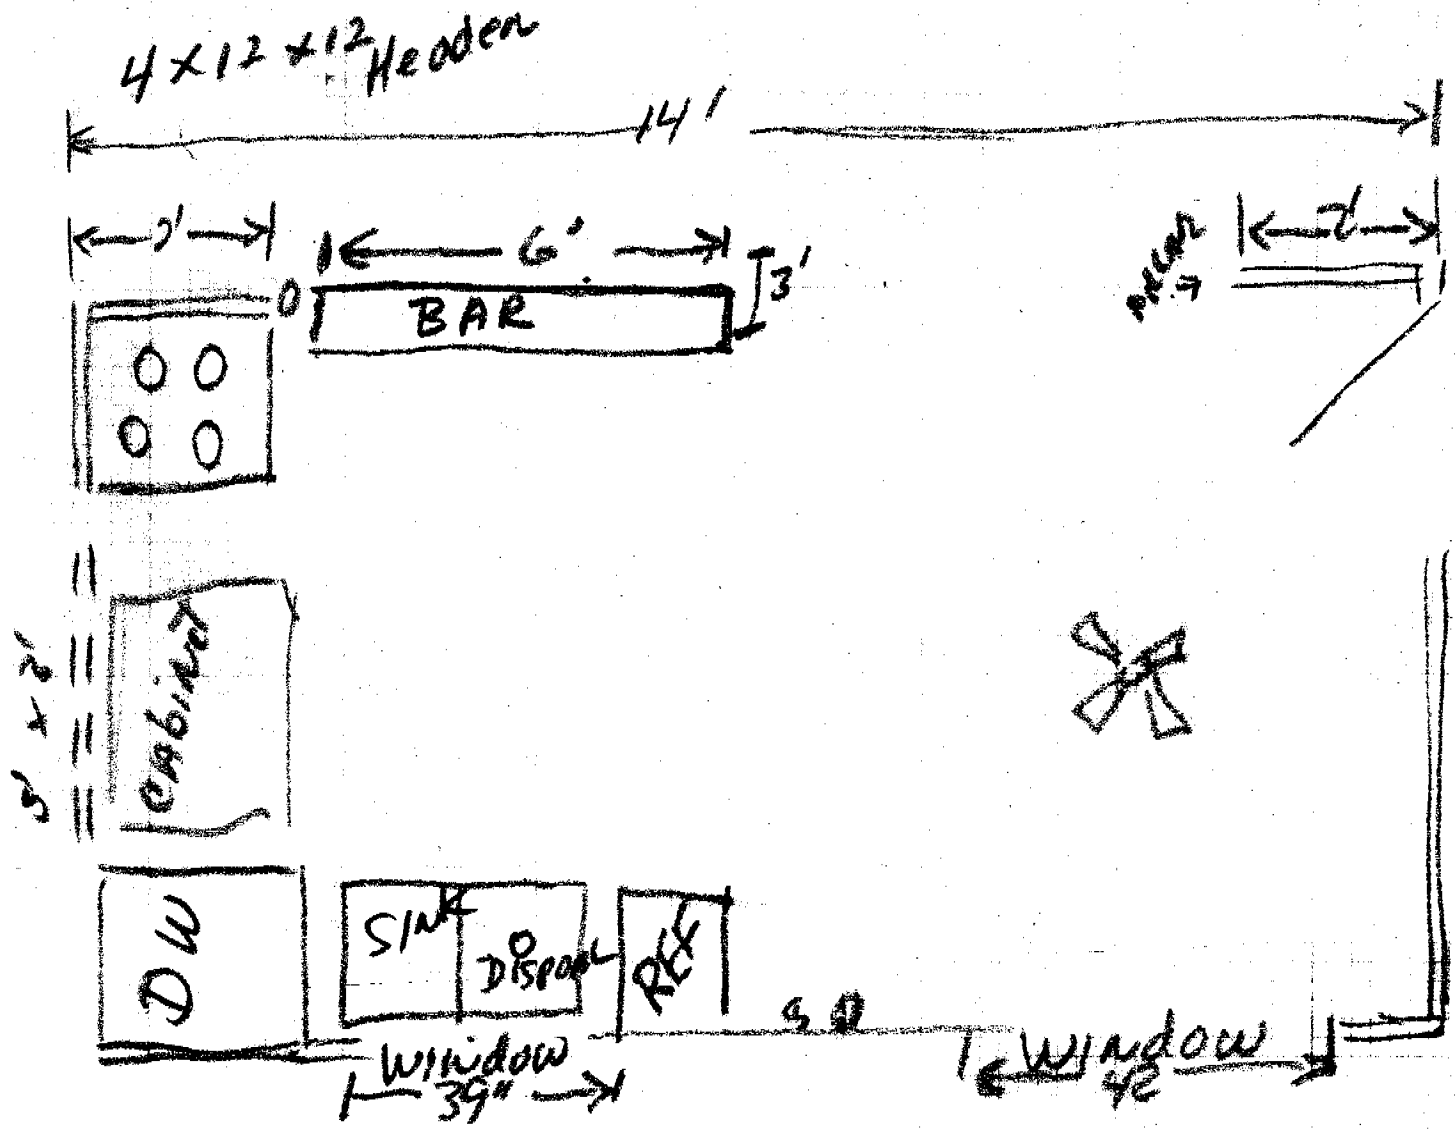 4 x 12 x 12 Header
14'
2'
6'
2'
3'
BAR
CABINET
DW
SINK
DISPOSAL
REF
WINDOW
39"
WINDOW
42